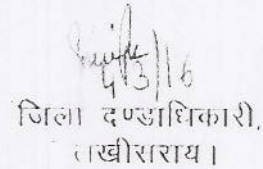 4/3/16
जिला दण्डाधिकारी,
लखीसराय।